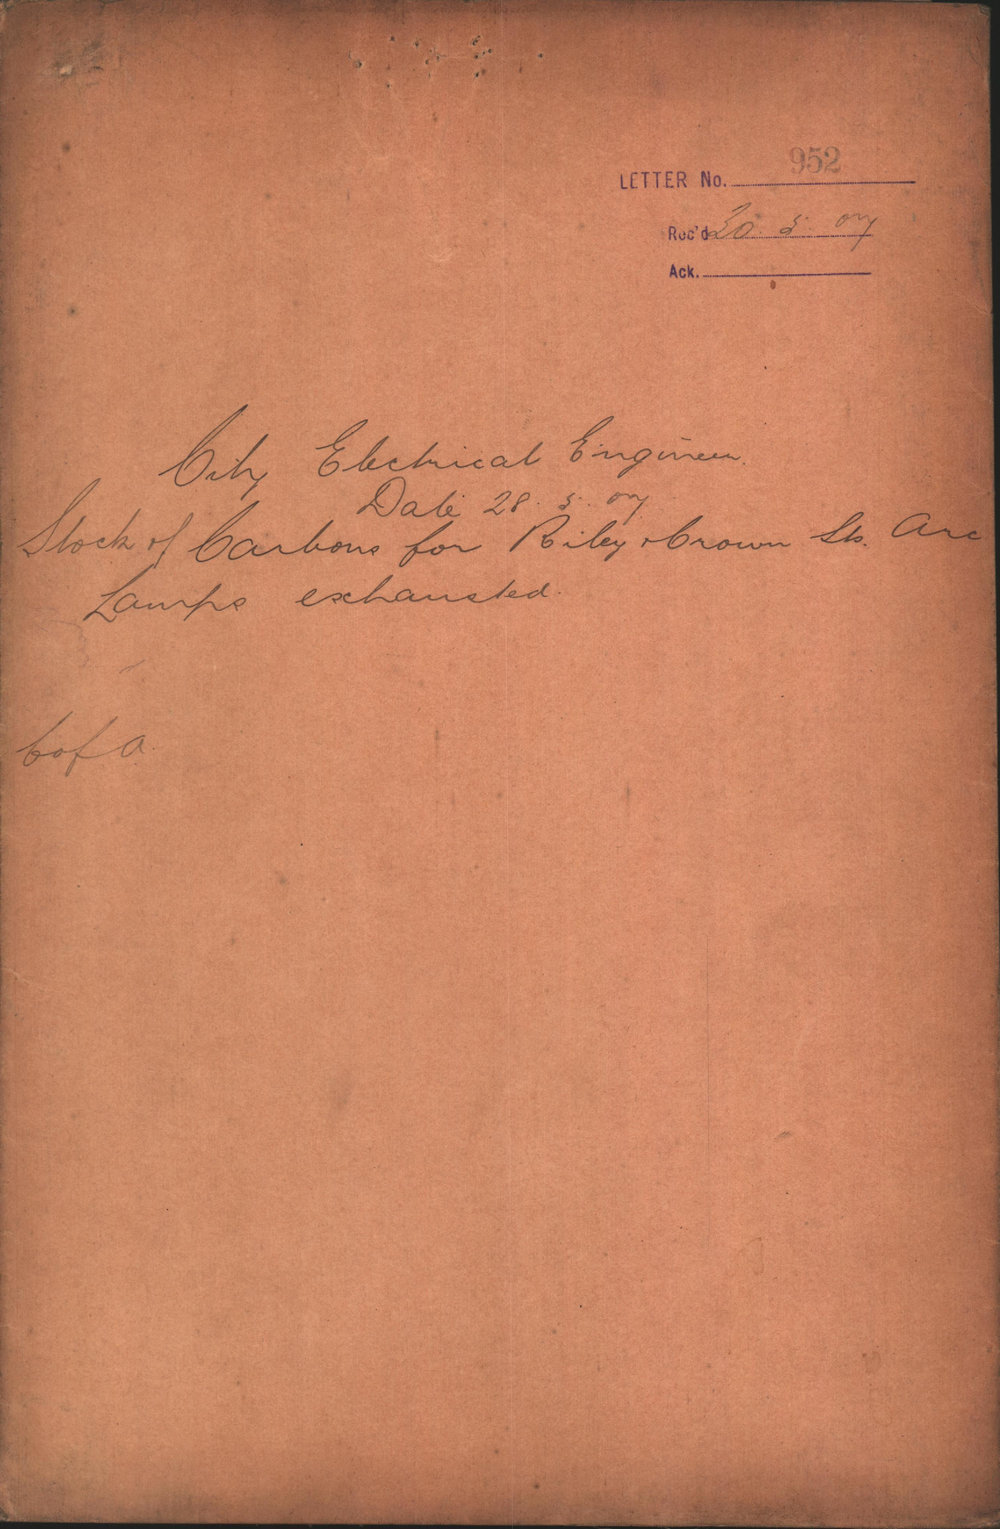 LETTER No. 952
Rec'd 30. 5. 07
Ack.
City Electrical Engineer.
Date 28. 5. 07
Stock of Carbons for Riley & Crown Sts. Arc
Lamps exhausted.
C of A.